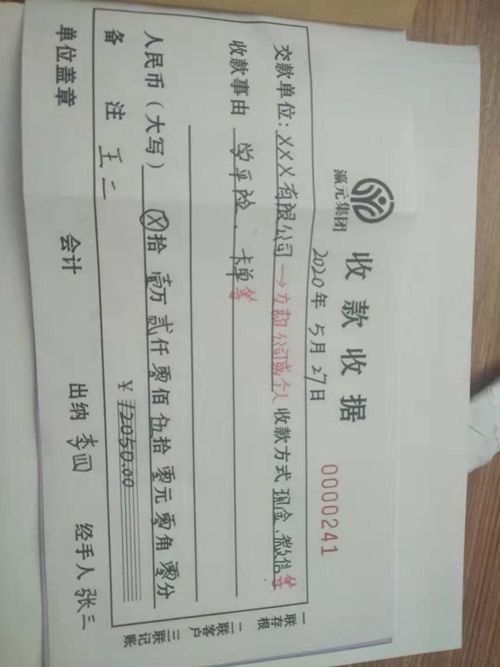 瀛元集团
收款收据
2020年5月27日
0000241
交款单位：XXX有限公司→方勤公司或个人 收款方式 现金、微信等
收款事由 学平险、卡单等
人民币（大写）Ⓧ拾壹万贰仟零佰伍拾零元零角零分
¥ 12050.00
备注 王二
单位盖章 会计 出纳 李四 经手人 张三
一联存根
二联客户
三联记账